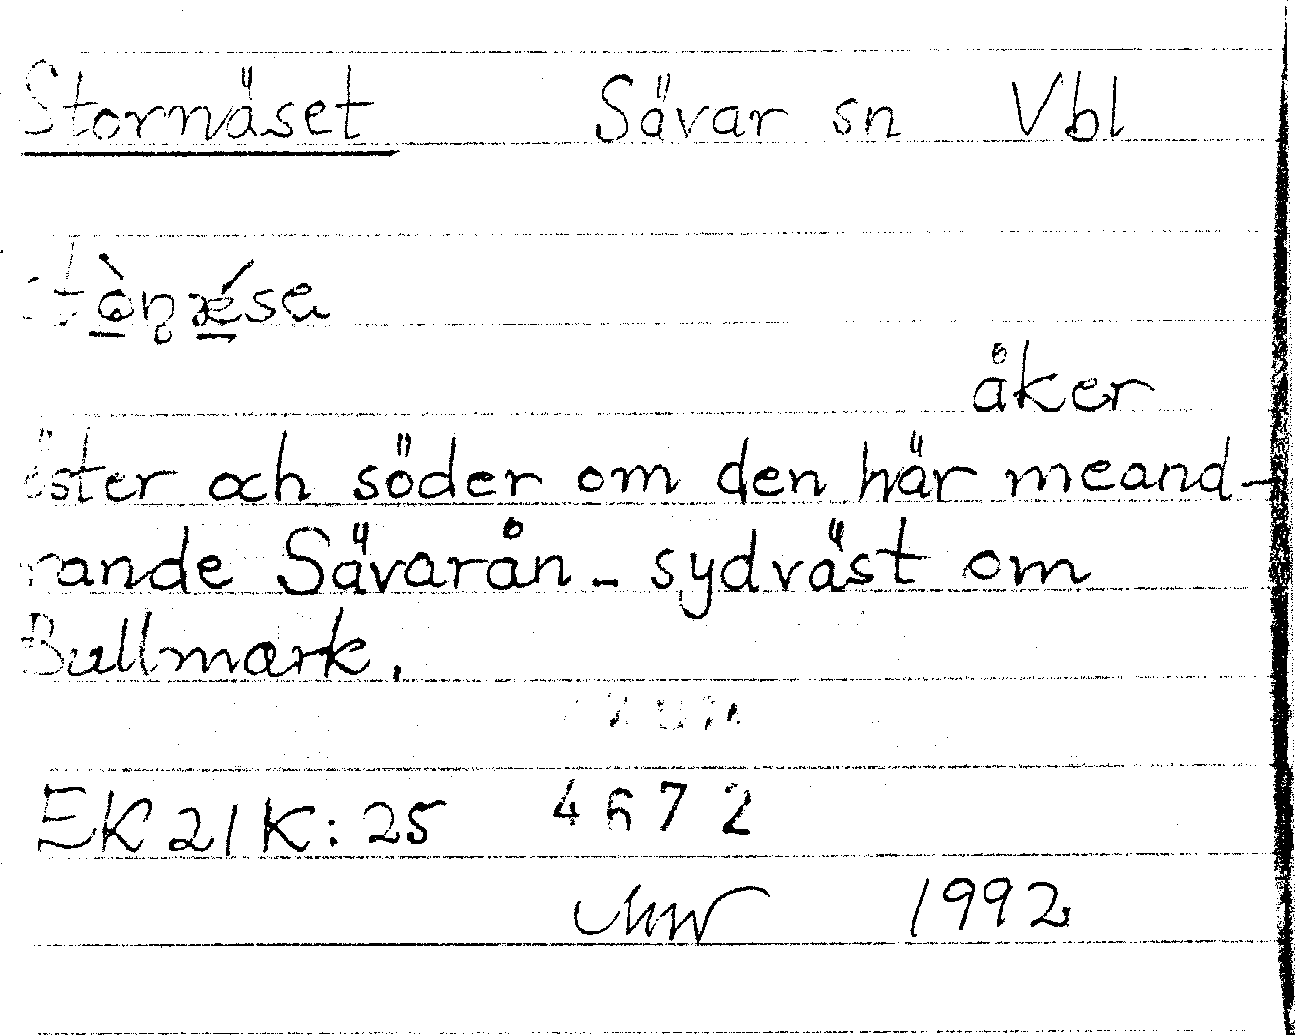 Stornäset Sävar sn Vbl
åker
öster och söder om den här meand-
rande Sävarån - sydväst om
Bullmark.
EK 21 K: 25 4672
1992